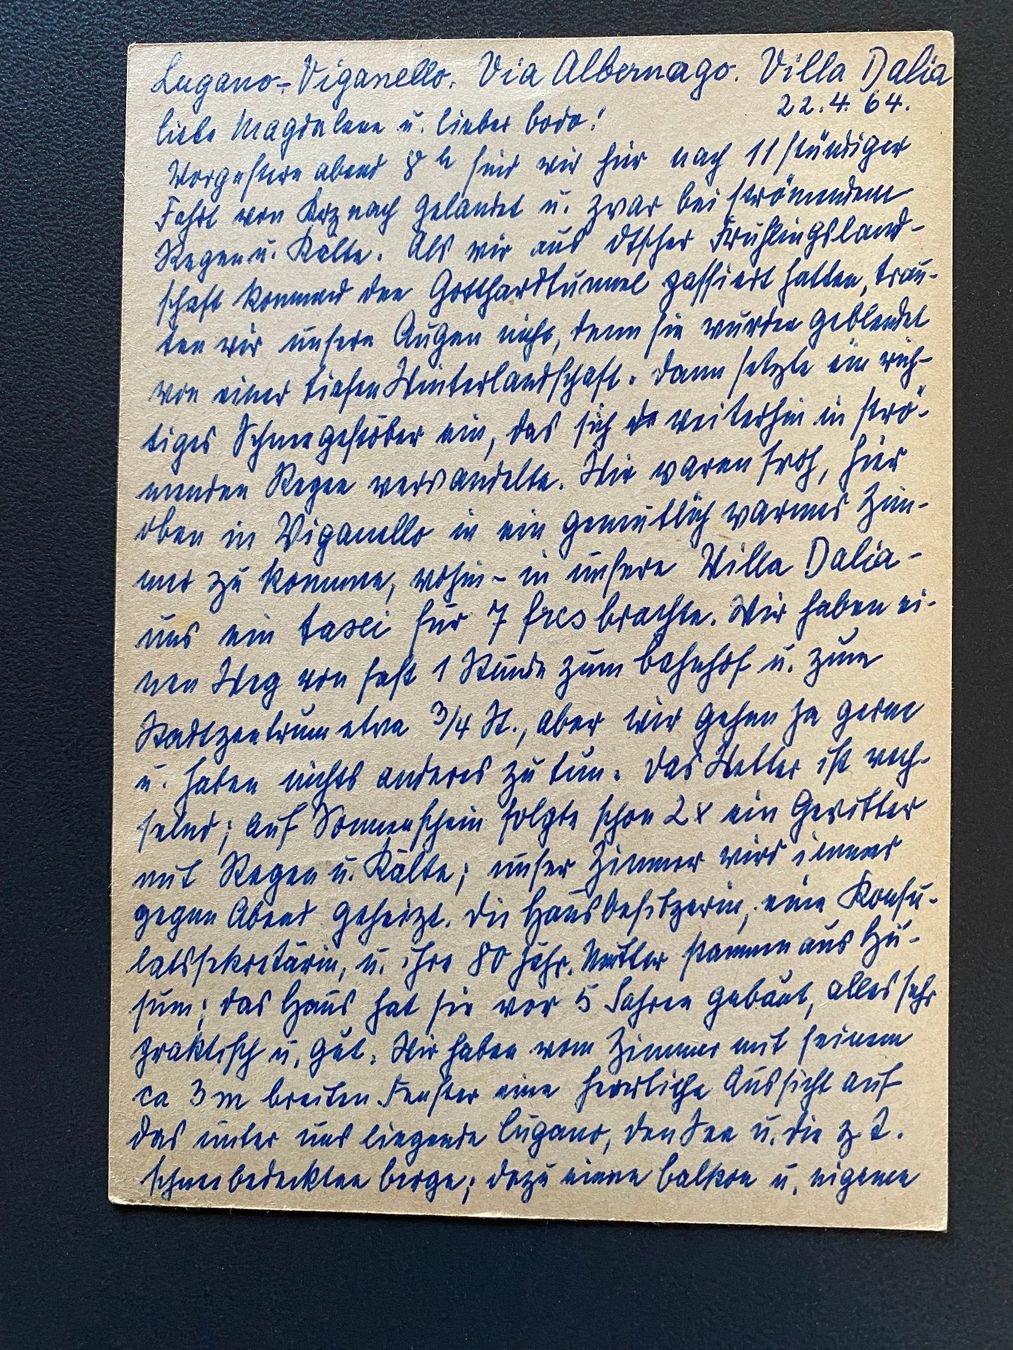 Lugano-Viganello. Via Albernago. Villa Dalia
22.4.64.
Liebe Magdalene u. lieber Bodo!
Vorgestern abend 8 h sind wir hier nach 11 stündiger
Fahrt von Krznach gelandet u. zwar bei strömendem
Regen u. Kälte. Als wir aus dtscher Frühlingsland-
schaft kommend den Gotthardtunnel passiert hatten, trau-
ten wir unsern Augen nicht, denn sie wurden geblendet
von einer tiefen Winterlandschaft. Dann setzte ein rich-
tiges Schneegestöber ein, das sich weiterhin in strö-
menden Regen verwandelte. Wir waren froh, hier
oben in Viganello in ein gemütlich warmes Zim-
mer zu kommen, wohin - in unsere Villa Dalia -
uns ein Taxi für 7 frcs brachte. Wir haben ei-
nen Weg von fast 1 Stunde zum Bahnhof u. zum
Stadtzentrum etwa 3/4 St., aber wir gehen ja gerne
u. haben nichts anderes zu tun. Das Wetter ist wech-
selnd; auf Sonnenschein folgte schon 2x ein Gewitter
mit Regen u. Kälte; unser Zimmer wird immer
gegen Abend geheizt. Die Hausbesitzerin, eine Konsu-
latssekretärin, u. ihre 80 jähr. Mutter stammen aus Hu-
sum; das Haus hat sie vor 5 Jahren gebaut, alles sehr
praktisch u. gut. Wir haben vom Zimmer mit seinem
ca 3 m breiten Fenster eine herrliche Aussicht auf
das unter uns liegende Lugano, den See u. die z. T.
schneebedeckten Berge; dazu einen Balkon u. eigenen